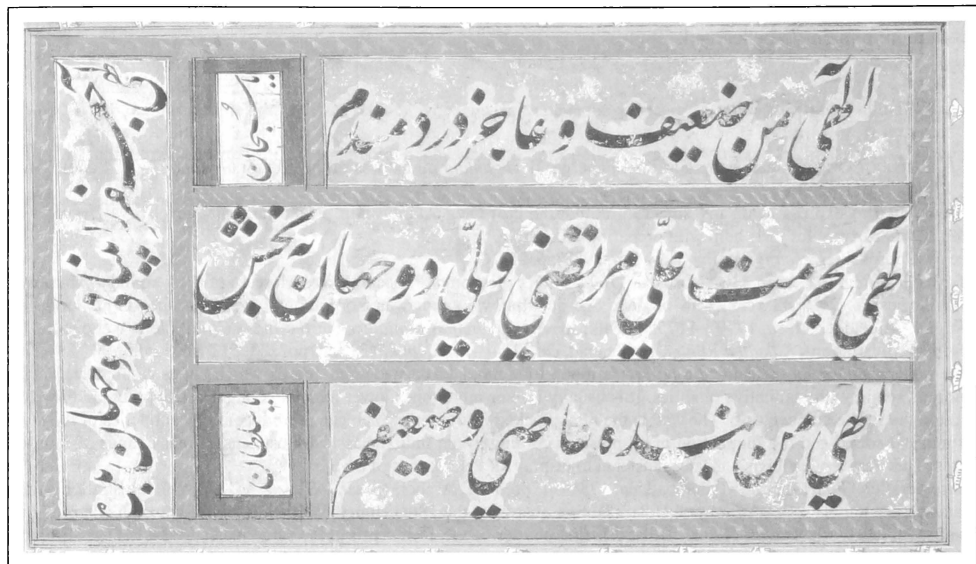 الهی من ضعیف و عاجز و دردمندم
یا سبحان
الهی بحرمت علی مرتضی ولی دو جهان به بخش
الهی من بنده عاصی و ضعیفم
یا سلطان
الهی دو جهان بده